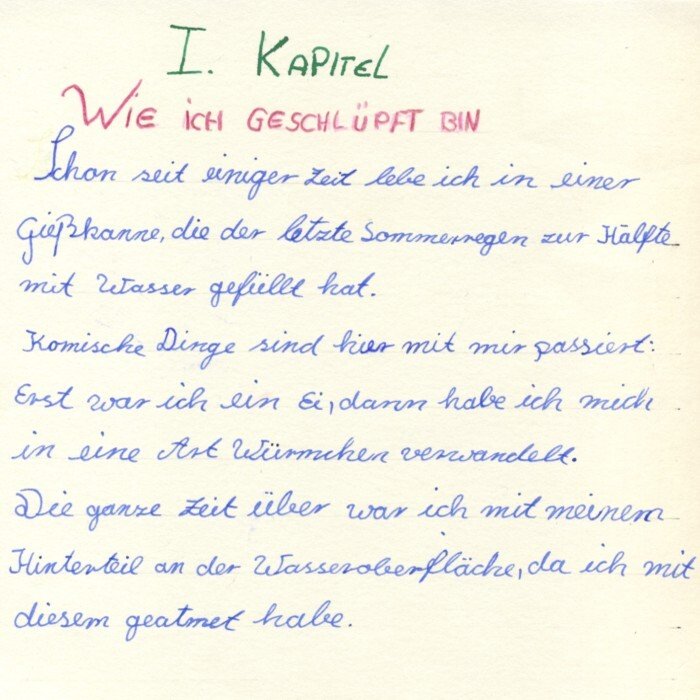 I. KAPITEL
WIE ICH GESCHLÜPFT BIN
Schon seit einiger Zeit lebe ich in einer
Gießkanne, die der letzte Sommerregen zur Hälfte
mit Wasser gefüllt hat.
Komische Dinge sind hier mit mir passiert:
Erst war ich ein Ei, dann habe ich mich
in eine Art Würmchen verwandelt.
Die ganze Zeit über war ich mit meinem
Hinterteil an der Wasseroberfläche, da ich mit
diesem geatmet habe.